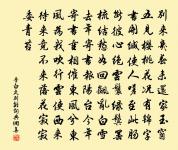 別來幾春未還家玉窗
五見櫻桃花況有錦字
書開緘使人嗟至此腸
斷彼心絕雲鬟綠鬢罷
梳結愁如回飆亂白雪
去年寄書報陽台今年
寄書重相催東風兮東
風為我吹行雲使西來
待來竟不來落花寂寂
委青苔
李白久別離詩